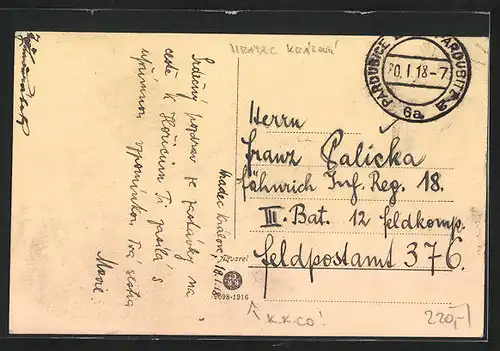 HRADEC KRÁLOVÉ
PARDUBICE PARDUBITZ 2
20.I.18-7
6a
Srdečný pozdrav ze zastávky na
cestě k Hořicům Ti posílá s
upřímnou vzpomínkou Tvá sestra
Hradec Králové, 18.I.18.
Herrn
Franz Palička
Fähnrich Inf. Reg. 18.
III. Bat. 12 Feldkomp.
Feldpostamt 376.
Aquarel
98-1916
K.K.CO!
220,-